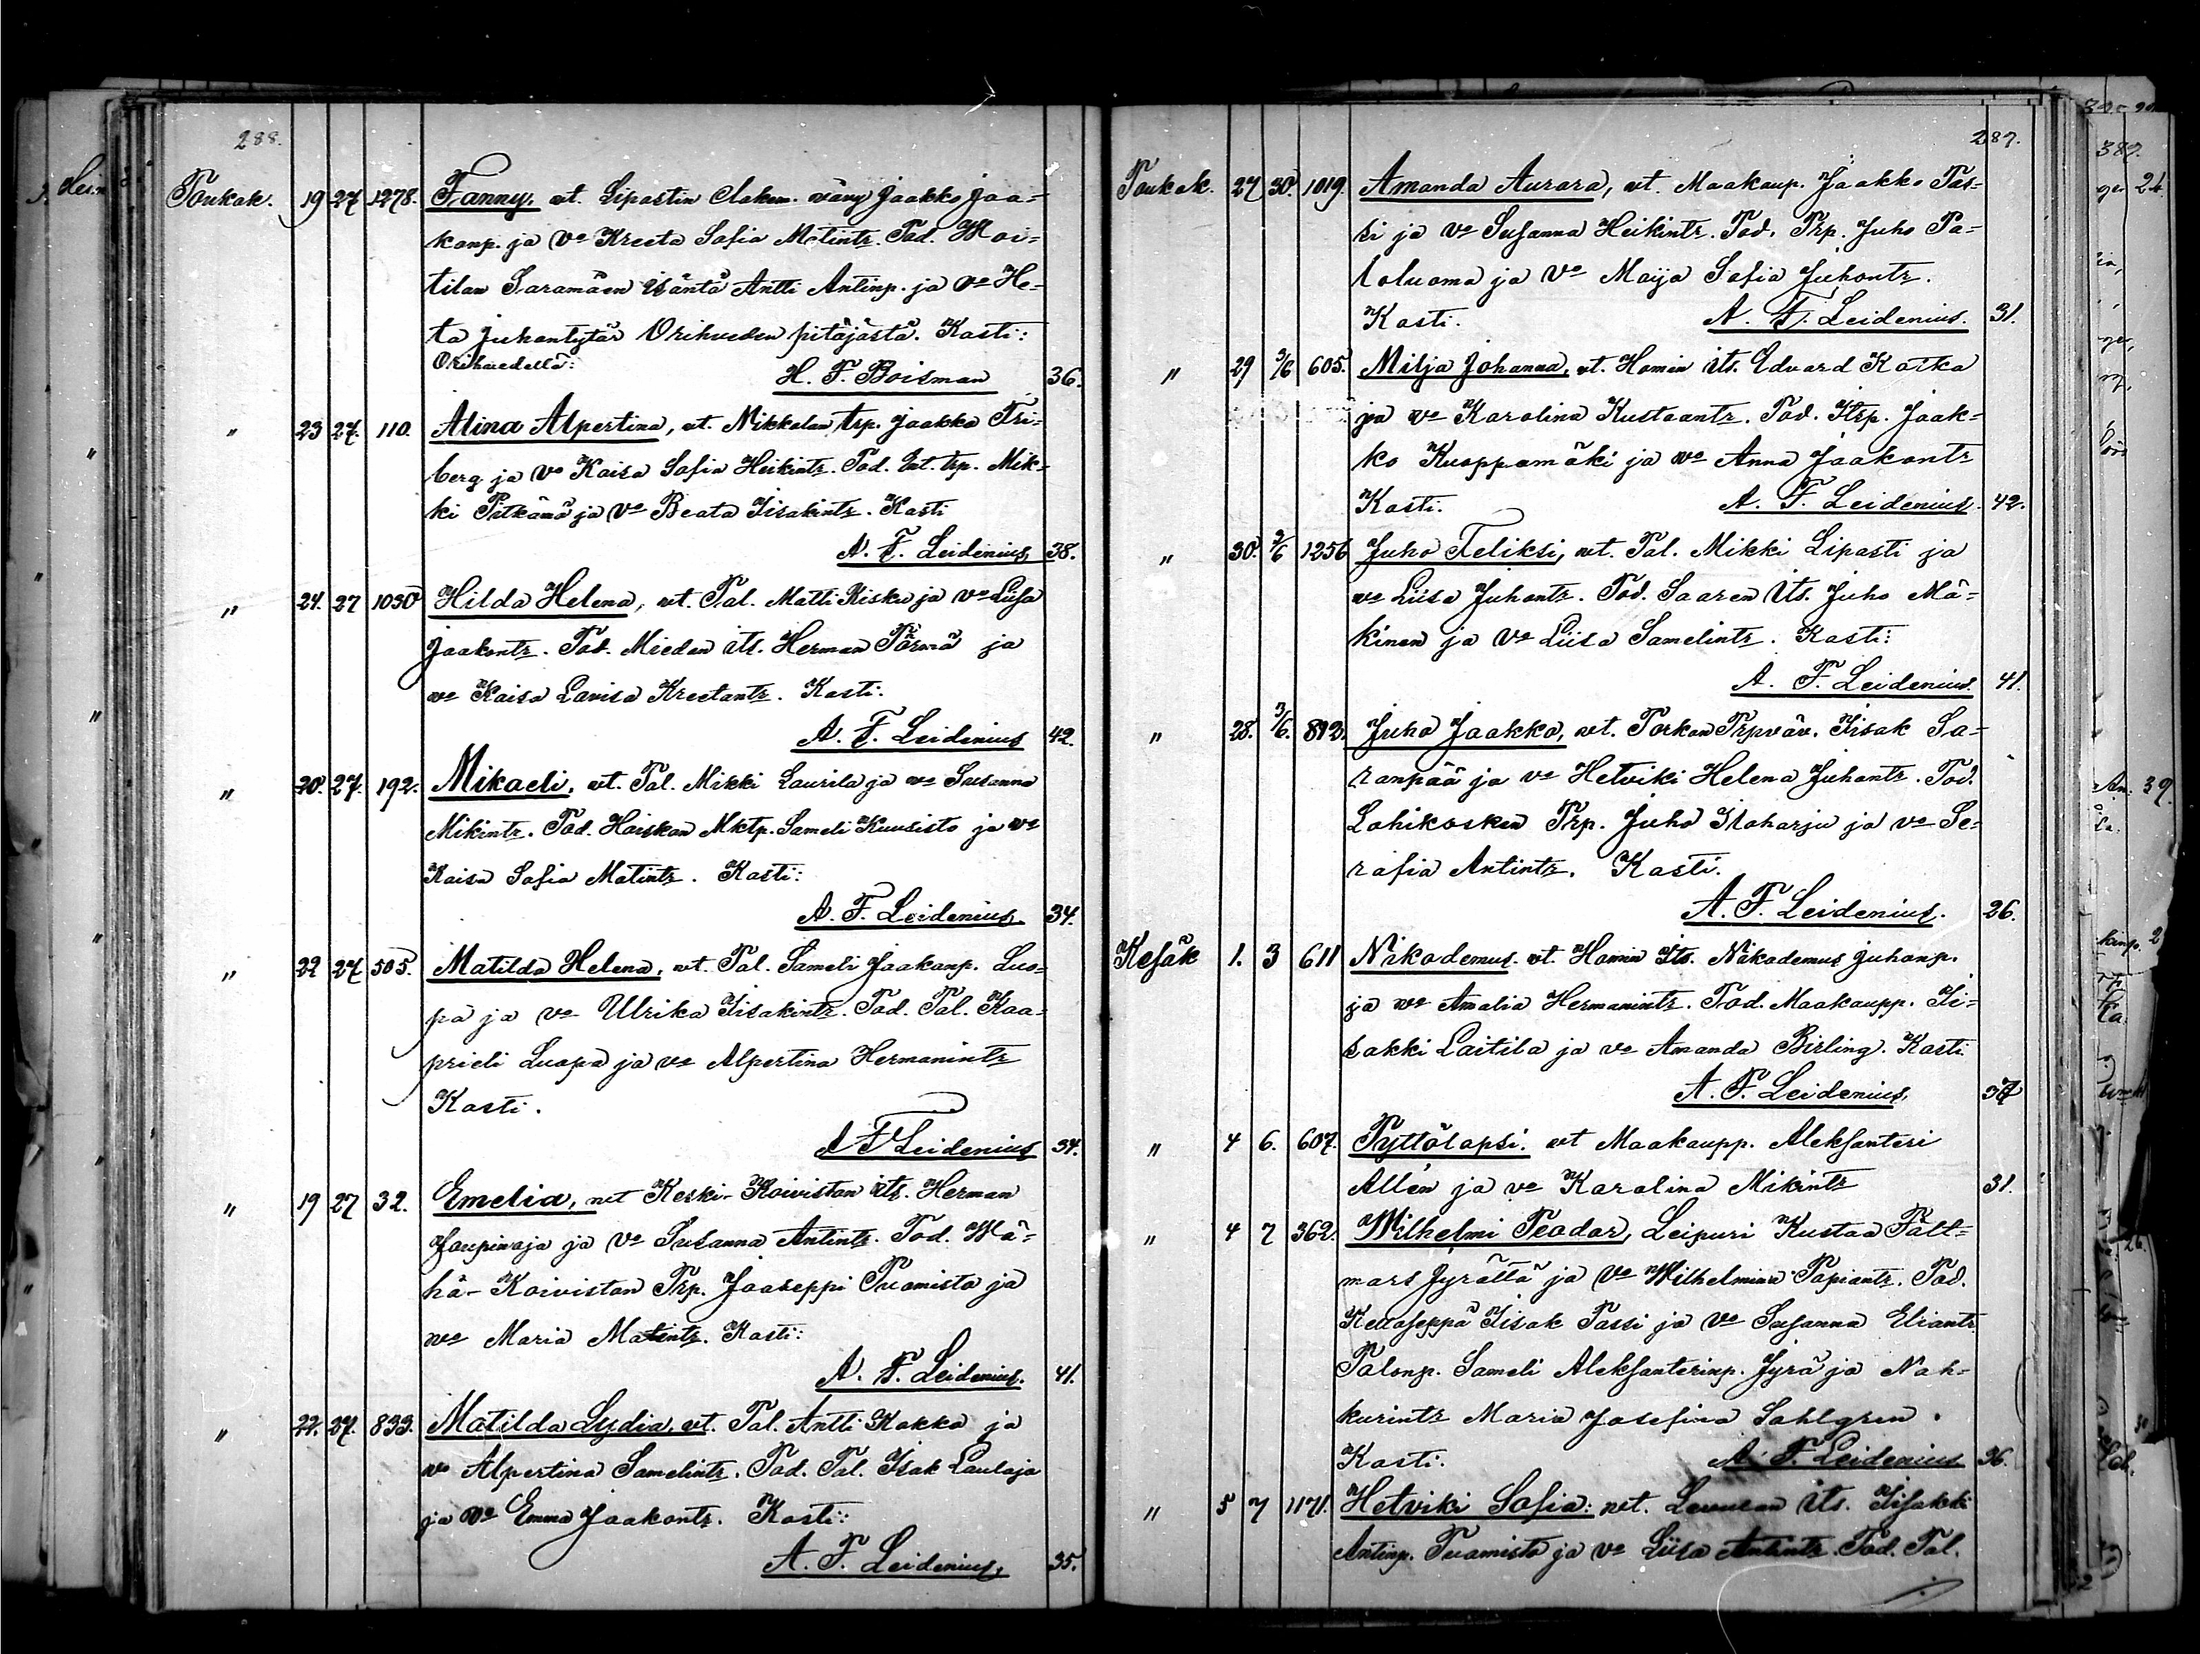 288.
Toukok. 19 27 1278. Fanny, vt. Lipastin Aakem. vävy Jaakko Jaa=
konp. ja Vo Kreeta Sofia Matintr. Tod. Moi=
tilan Saramäen isäntä Antti Antinp. ja Vo He=
ta Juhontytär Orihveden pitäjästä. Kasti:
Orihvedellä: H. F. Boisman 36.
" 23 27. 110. Alina Alpertina, vt. Mikkolan trp. Jaakko Fri=
berg ja Vo Kaisa Sofia Heikintr. Tod. Ent. trp. Mik=
ki Pitkämä ja Vo Beata Iisakintr. Kasti
A. F. Leidenius 38.
" 24. 27 1030 Hilda Helena, vt. Tal. Matti Kisku ja Vo Liisa
Jaakontr. Tod. Mieden its. Herman Törmä ja
vo Kaisa Lovisa Kreetantr. Kasti:
A. F. Leidenius 42.
" 20. 27. 192. Mikaeli, vt. Tal. Mikki Laurila ja vo Susanna
Mikintr. Tod. Hoiskan Mktp. Sameli Kuusisto ja vo
Kaisa Sofia Matintr. Kasti:
A. F. Leidenius. 34.
" 22 27 505. Matilda Helena, vt. Tal. Sameli Jaakonp. Luo=
pa ja vo Ulrika Iisakintr. Tod. Tal. Kaa=
prieli Luopa ja vo Alpertina Hermanintr
Kasti.
A F Leidenius 34.
" 19 27 32. Emelia, vt Keski-Koiviston its. Herman
Jouppinaja ja Vo Susanna Antintr. Tod. Wä=
hä-Koiviston Trp. Jooseppi Tuomisto ja
vo Maria Matintr. Kasti:
A. F. Leidenius. 41.
" 22. 27. 833. Matilda Lydia, vt. Tal. Antti Kokko ja
vo Alpertina Samelintr. Tod. Tal. Isak Laulaja
ja Vo Emma Jaakontr. Kasti:
A. F. Leidenius, 35.
287.
Toukok. 27 30. 1019. Amanda Aurora, vt. Maakaup. Jaakko Pas=
si ja Vo Susanna Heikintr. Tod. Trp. Juho Pa=
loluoma ja Vo Maija Sofia Juhontr.
Kasti. A. F. Leidenius. 31.
" 29 3/6 605. Milja Johanna, vt. Homin its. Edvard Koska
ja vo Karolina Kustaantr. Tod. Itrp. Jaak=
ko Kuoppamäki ja vo Anna Jaakontr
Kasti. A. F. Leidenius. 42.
" 30. 3/6 1256 Juho Feliksi, vt. Tal. Mikki Lipasti ja
vo Liisa Juhontr. Tod. Saaren its. Juho Mä=
kinen ja Vo Liisa Samelintr. Kasti:
A. F. Leidenius. 41.
" 28. 3/6. 892. Juho Jaakko, vt. Porkon Trpväv. Iisak Sa=
ranpää ja vo Hetviki Helena Juhontr. Tod.
Lohikosken Trp. Juho Iloharju ja vo Se=
rafia Antintr. Kasti.
A. F. Leidenius. 26.
Kesäk 1. 3 611 Nikodemus. vt. Homin Its. Nikodemus Juhonp.
ja vo Amalia Hermanintr. Tod. Maakaupp. Ii=
sakki Laitila ja vo Amanda Birling. Kasti
A. F. Leidenius, 37
" 4 6. 607. Tyttölapsi. vt Maakaupp. Aleksanteri
Allén ja vo Karolina Mikintr 31.
" 4 7 362. Wilhelmi Teodor, Leipuri Kustaa Fält=
mars Jyrältä ja Vo Wilhelmina Topiantr. Tod.
Kellaseppä Iisak Passi ja Vo Susanna Eliantr
Talonp. Sameli Aleksanterinp. Jyrä ja Nah=
kurintr Maria Josefina Sahlgren.
Kasti. A. F. Leidenius 36.
" 5 7 1171. Hetviki Sofia: vt. Its. Iisakki
Antinp. Tuomisto ja Vo Liisa Antintr. Tod. Tal.